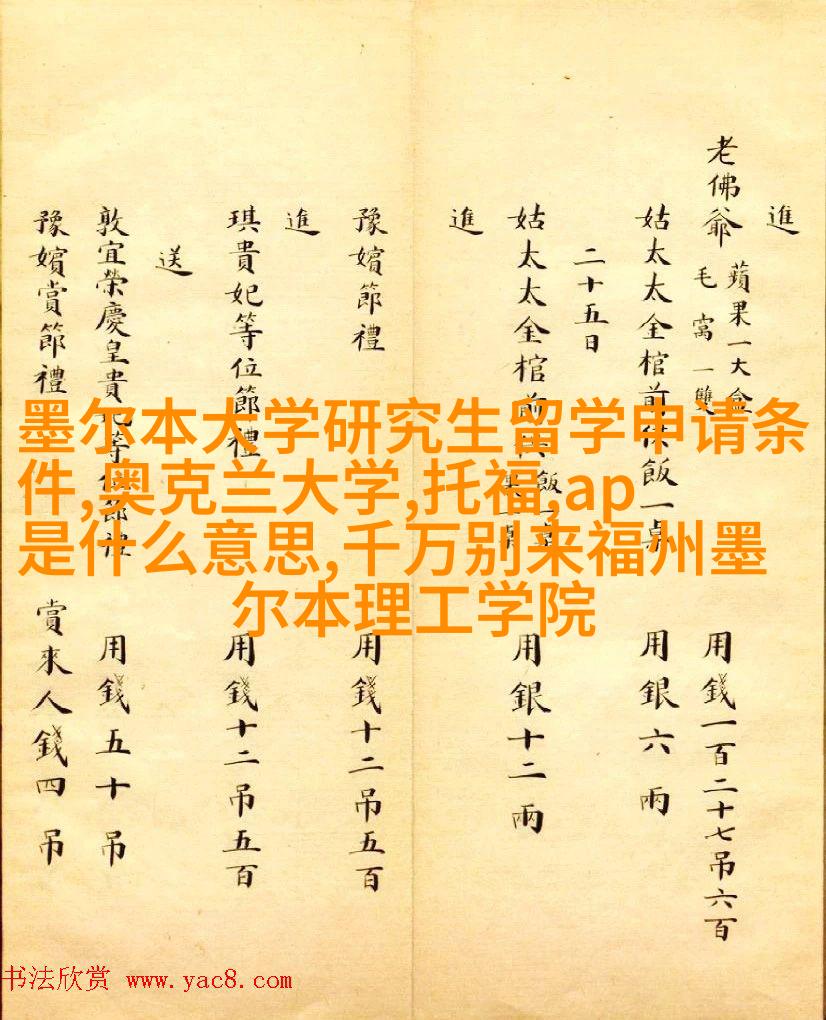 進
老佛爺 蘋果一大盒 毛窩一雙 用錢一百二十七吊六百
姑太太金棺前供飯一桌 用銀六兩
二十五日
姑太太金棺前 飯一桌 用銀十二兩
進
豫嬪節禮 用錢十二吊五百
進
琪貴妃等位節禮 用錢十二吊五百
送
敦宜榮慶皇貴妃等位節禮 用錢五十吊
豫嬪賞節禮 賞來人錢四吊
墨尔本大学研究生留学申请条
件,奥克兰大学,托福,ap
是什么意思,千万别来福州墨
尔本理工学院
书法欣赏 www.yac8.com